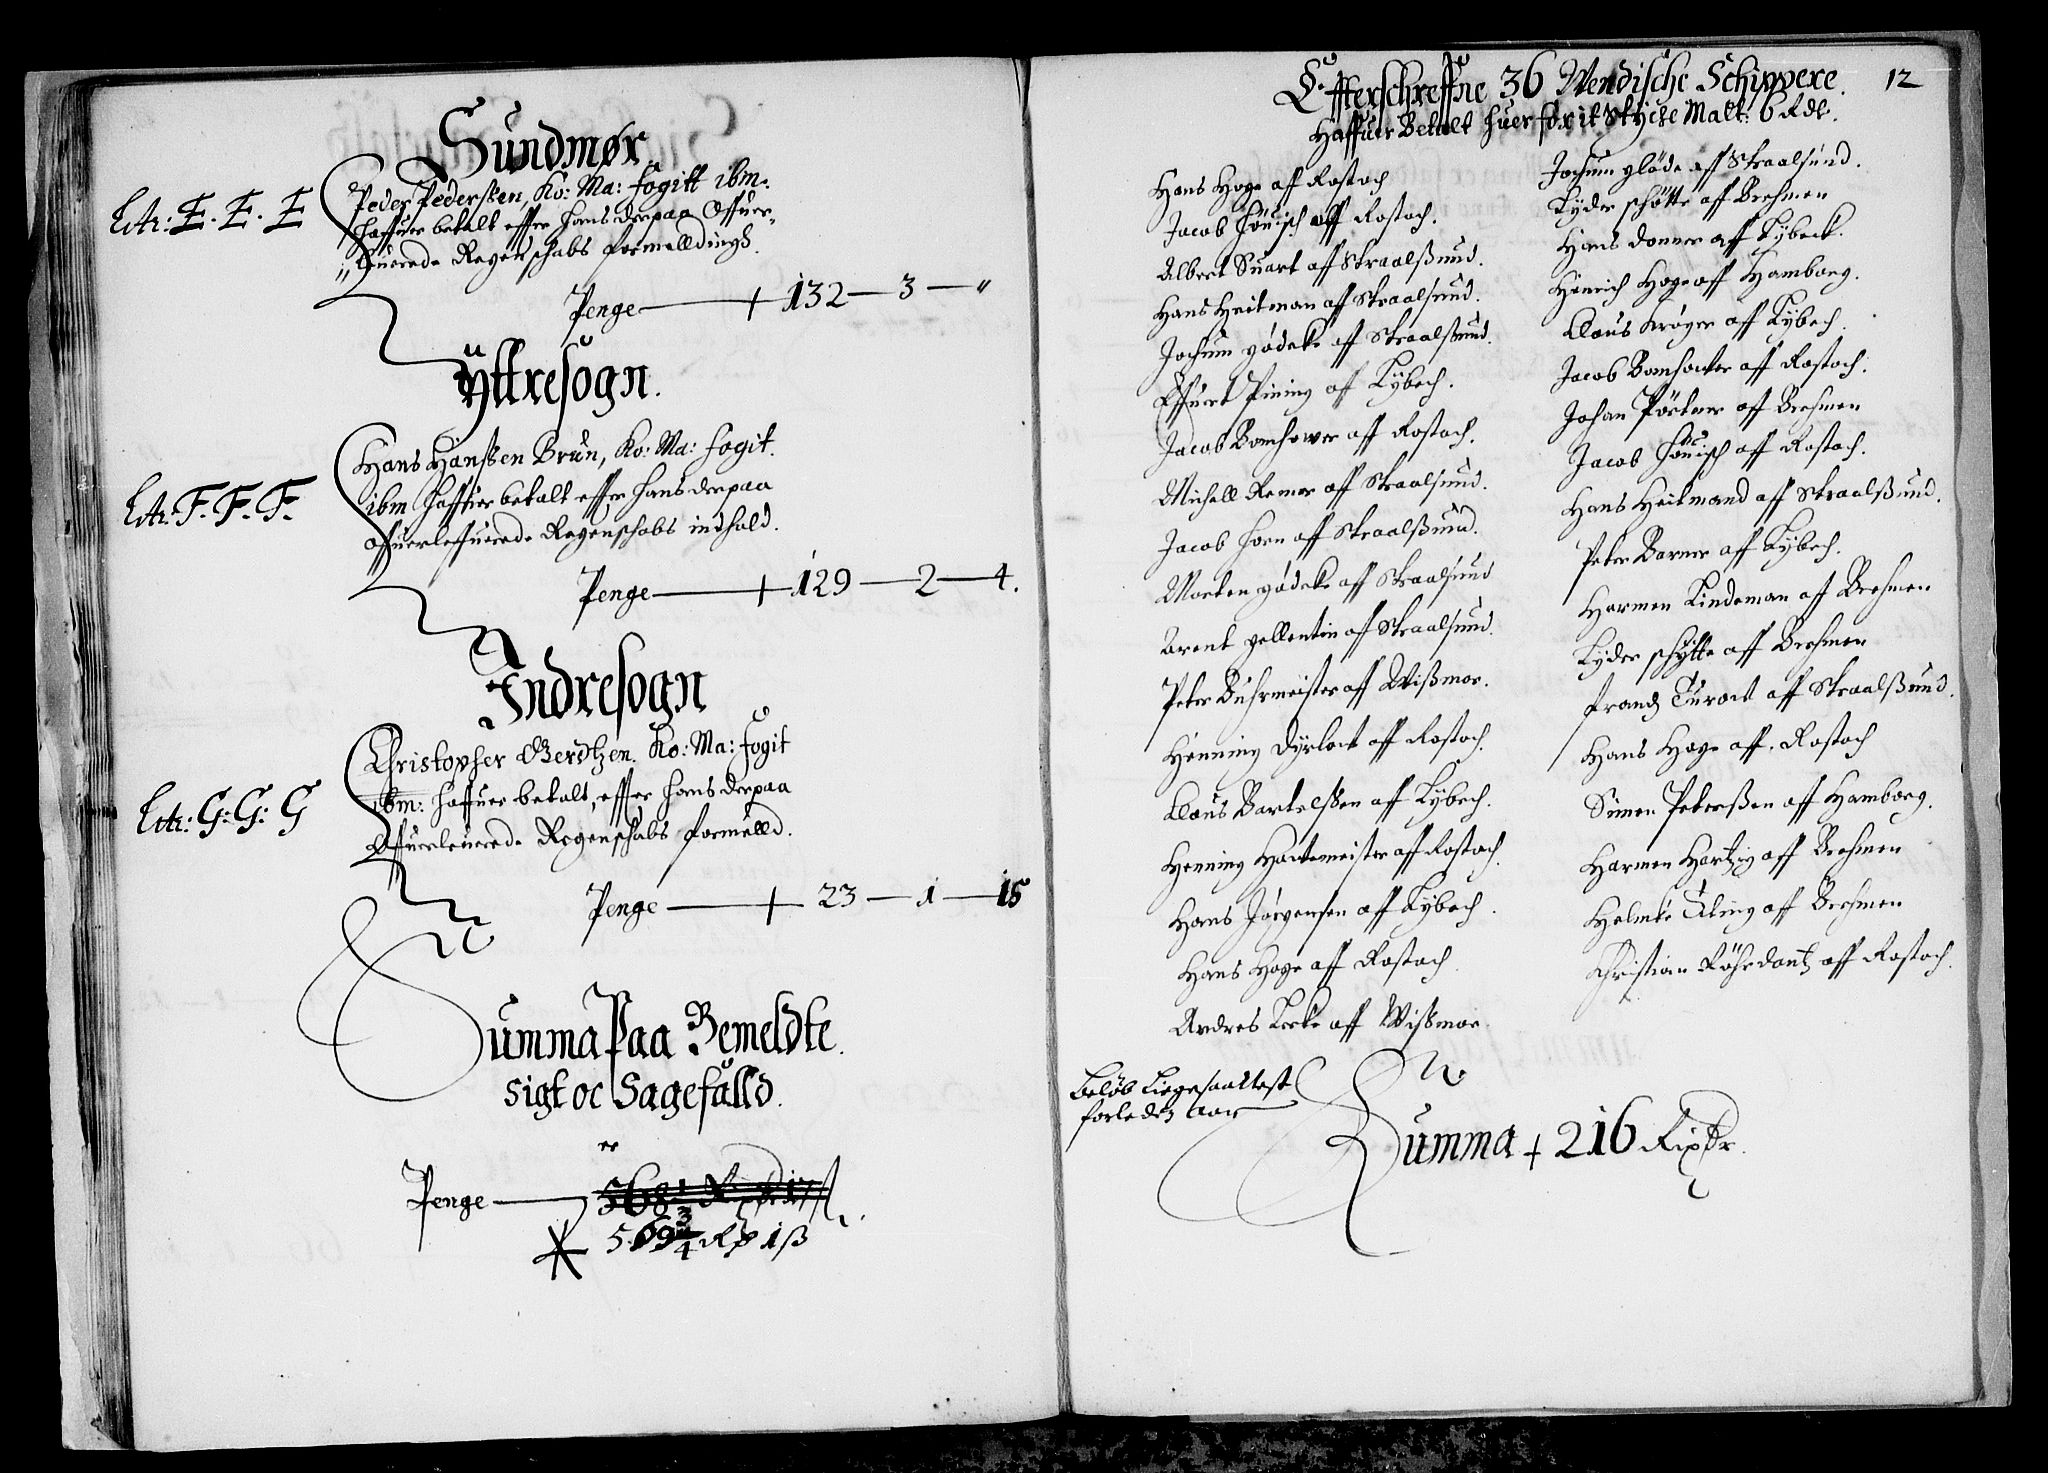 Sundmør
Litr: E. E. E
Peder Pederßen, Ko: Ma: fogitt ibm:
haffuer betalt effter hans derpaa Offuer-
"leuerede Regenschabs formelldingh.
Penge + 132 — 3 — "
Ÿttresogn.
Litr: F. F. F.
Hans Hanßen Brun, Ko: Ma: fogit.
ibm haffuer betalt effter hans derpaa
offuerleffuerede Regenschabs indhald.
Penge + 129 — 2 — 4.
Indresogn
Litr: G: G: G
Christopher Gerdtzen. Ko: Ma: fogit
ibm: haffuer betalt, effter hans derpaa
Offuerleuerede Regenschabs formelld.
Penge + 23 — 1 — 15
Summa Paa Bemeldte.
Sigt oc Sagefalld.
er
Penge 568 1/2 Rixdr 17 ß.
569 3/4 Rß 1 ß
12
Effterschreffne 36 Wendische Schippere.
Haffuer Betalt huer for it Stycke Malt: 6 Rdr.
Hans Hoge aff Rostoch
Jacob Höuisch aff Rostoch.
Albert Suart aff Straalßund.
Hans Heitman aff Straalsund.
Jochum gödeke aff Straalßund.
Effuert Pining aff Lÿbech.
Jacob Bomhower aff Rostoch.
Michell Remer aff Straalsund.
Jacob Horn aff Straalßund.
Morten gödeke aff Straalsund
Arent gellentin aff Straalsund.
Peter Buhrmeister aff Wißmor.
Henning Dÿrlock aff Rostoch.
Claus Bartelßen aff Lÿbech.
Henning Hartemeister aff Rostoch.
Hans Jörgensen aff Lÿbech.
Hans Hoge aff Rostoch
Andres Lerke aff Wißmor.
Jochum glöde aff Straalsund.
Lÿder schötte aff Brehmen
Hans donner aff Lÿbeck.
Hinrich Hoge aff Hamborg.
Claus Kröger aff Lÿbech.
Jacob Bomhouter aff Rostoch.
Johan Pörtner aff Brehmen
Jacob Höuisch aff Rostoch.
Hans Heitmand aff Straalßund.
Peter Barner aff Lÿbech.
Harmen Lindeman aff Brehmen
Lÿder schÿtte aff Brehmen
frandz Turock aff Straalßund.
Hans Hoge aff. Rostoch
Simen Peterßen aff Hamborg.
Harmen Hartzig aff Brehmen
Helmke Uling aff Brehmen
Christian Röhrdantz aff Rostoch.
Beløb Liigesaaltest
forleden Aar
Summa + 216 Rixdr.